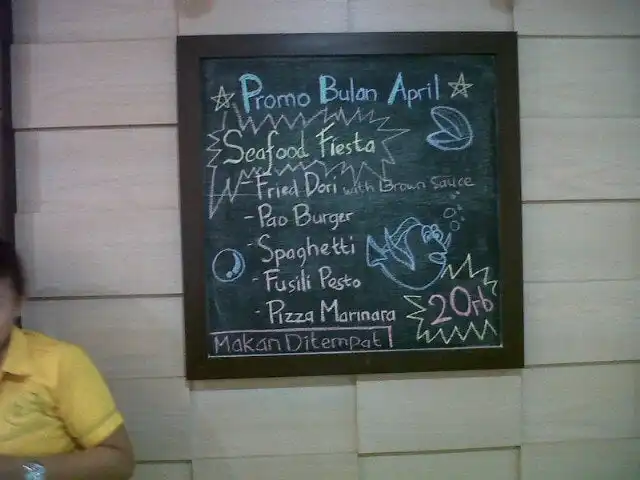 Promo Bulan April
Seafood Fiesta
- Fried Dori with Brown Sauce
- Pao Burger
- Spaghetti
- Fusili Pesto
- Pizza Marinara
20rb
Makan Ditempat